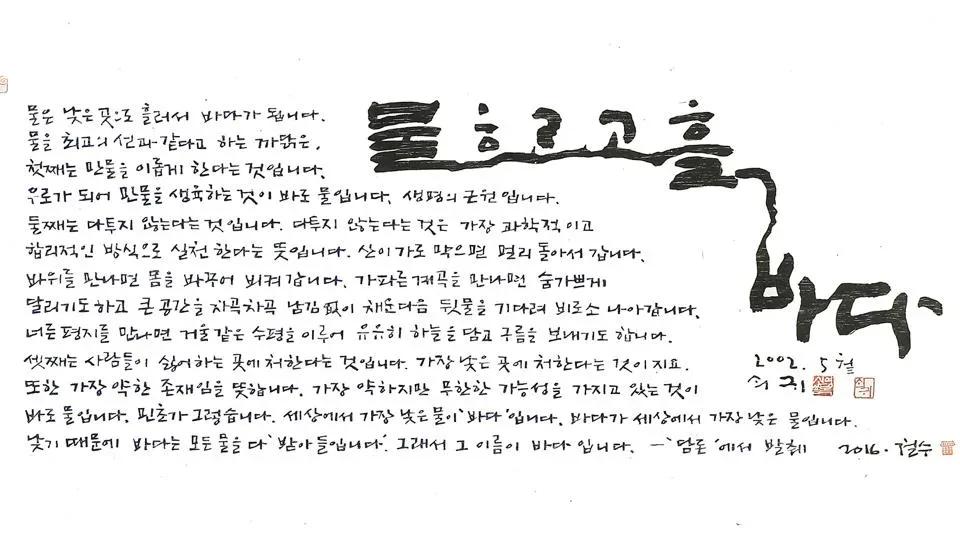 물 흐르고 흘
바다
2002. 5월
쇠귀
물은 낮은 곳으로 흘러서 바다가 됩니다.
물을 최고의 선과 같다고 하는 까닭은,
첫째는 만물을 이롭게 한다는 것입니다.
우로가 되어 만물을 생육하는 것이 바로 물입니다. 생명의 근원입니다.
둘째는 다투지 않는다는 것입니다. 다투지 않는다는 것은 가장 과학적이고
합리적인 방식으로 실천한다는 뜻입니다. 산이 가로 막으면 멀리 돌아서 갑니다.
바위를 만나면 몸을 바꾸어 비켜 갑니다. 가파른 계곡을 만나면 숨가쁘게
달리기도 하고 큰 공간을 차곡차곡 남김없이 채운다음 뒷물을 기다려 비로소 나아갑니다.
너른 평지를 만나면 거울같은 수평을 이루어 유유히 하늘을 담고 구름을 보내기도 합니다.
셋째는 사람들이 싫어하는 곳에 처한다는 것입니다. 가장 낮은 곳에 처한다는 것이지요.
또한 가장 약한 존재임을 뜻합니다. 가장 약하지만 무한한 가능성을 가지고 있는 것이
바로 물입니다. 민초가 그렇습니다. 세상에서 가장 낮은 물이 '바다'입니다. 바다가 세상에서 가장 낮은 물입니다.
낮기 때문에 바다는 모든 물을 다 '받아들입니다'. 그래서 그 이름이 바다입니다. —'담론'에서 발췌 2016. 철수